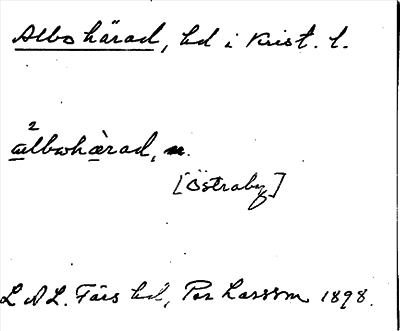 Albo härad, hd i Krist. l.
²a̲lbohæ̀rad, n.
[Östraby]
L A L. Färs hd, Per Larsson 1898.